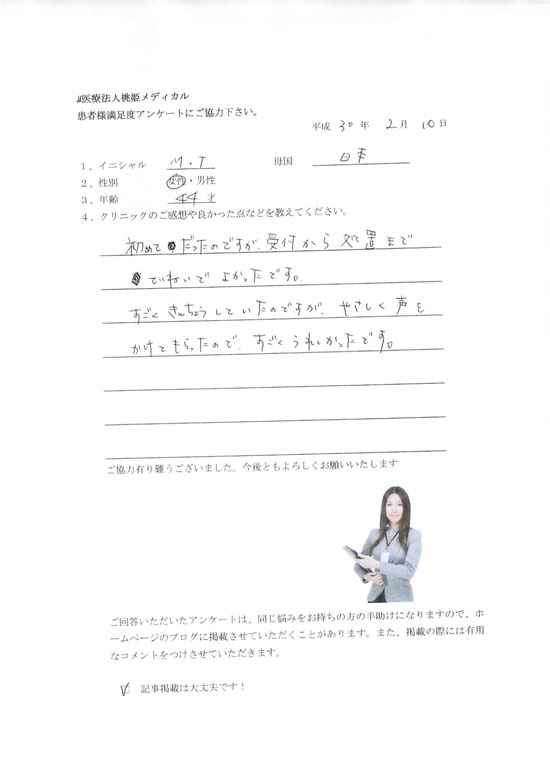 医療法人桃姫メディカル
患者様満足度アンケートにご協力下さい。
平成 30 年 2 月 10 日
1、イニシャル M・T 母国 日本
2、性別 女性・男性
3、年齢 44才
4、クリニックのご感想や良かった点などを教えてください。
初めてだったのですが、受付から処置まで
ていねいでよかったです。
すごくきんちょうしていたのですが、やさしく声を
かけてもらったので、すごくうれしかったです。
ご協力有り難うございました。今後ともよろしくお願いいたします
ご回答いただいたアンケートは、同じ悩みをお持ちの方の手助けになりますので、ホ
ームページのブログに掲載させていただくことがあります。また、掲載の際には有用
なコメントをつけさせていただきます。
☑ 記事掲載は大丈夫です！